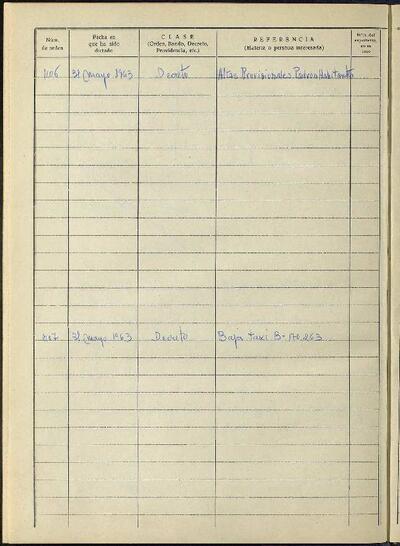 Núm. de orden
Fecha en que ha sido dictado
CLASE (Orden, Bando, Decreto, Providencia, etc.)
REFERENCIA (Materia o persona interesada)
Núm. del expediente, en su caso
1106 31 mayo 1963 Decreto Altas Provisionales Padron Habitantes
1107 31 mayo 1963 Decreto Baja taxi B-170.263